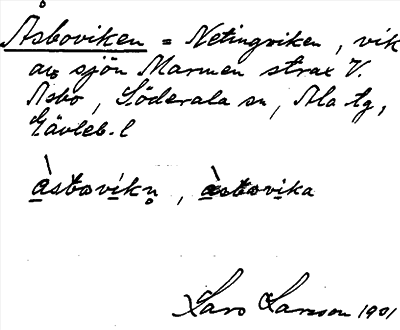 Åsboviken = Netingviken, vik
av sjön Marmen strax V.
Åsbo, Söderala sn, Ala tg,
Gävleb. l
Lars Larsson 1901